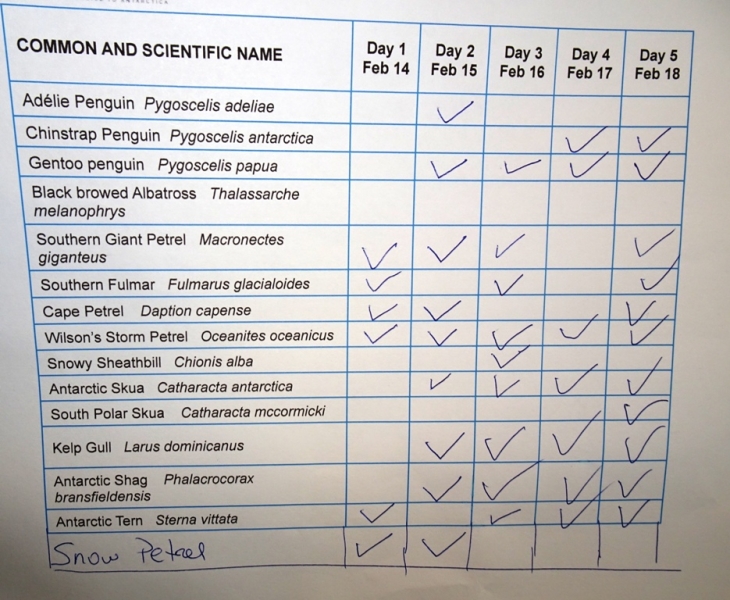 COMMON AND SCIENTIFIC NAME Day 1 Day 2 Day 3 Day 4 Day 5
Feb 14 Feb 15 Feb 16 Feb 17 Feb 18
Adélie Penguin Pygoscelis adeliae ✓
Chinstrap Penguin Pygoscelis antarctica ✓ ✓
Gentoo penguin Pygoscelis papua ✓ ✓ ✓ ✓
Black browed Albatross Thalassarche
melanophrys
Southern Giant Petrel Macronectes
giganteus ✓ ✓ ✓ ✓
Southern Fulmar Fulmarus glacialoides ✓ ✓ ✓
Cape Petrel Daption capense ✓ ✓ ✓
Wilson's Storm Petrel Oceanites oceanicus ✓ ✓ ✓ ✓ ✓
Snowy Sheathbill Chionis alba ✓
Antarctic Skua Catharacta antarctica ✓ ✓ ✓ ✓
South Polar Skua Catharacta mccormicki ✓
Kelp Gull Larus dominicanus ✓ ✓ ✓ ✓
Antarctic Shag Phalacrocorax
bransfieldensis ✓ ✓ ✓ ✓
Antarctic Tern Sterna vittata ✓ ✓ ✓ ✓
Snow Petrel ✓ ✓